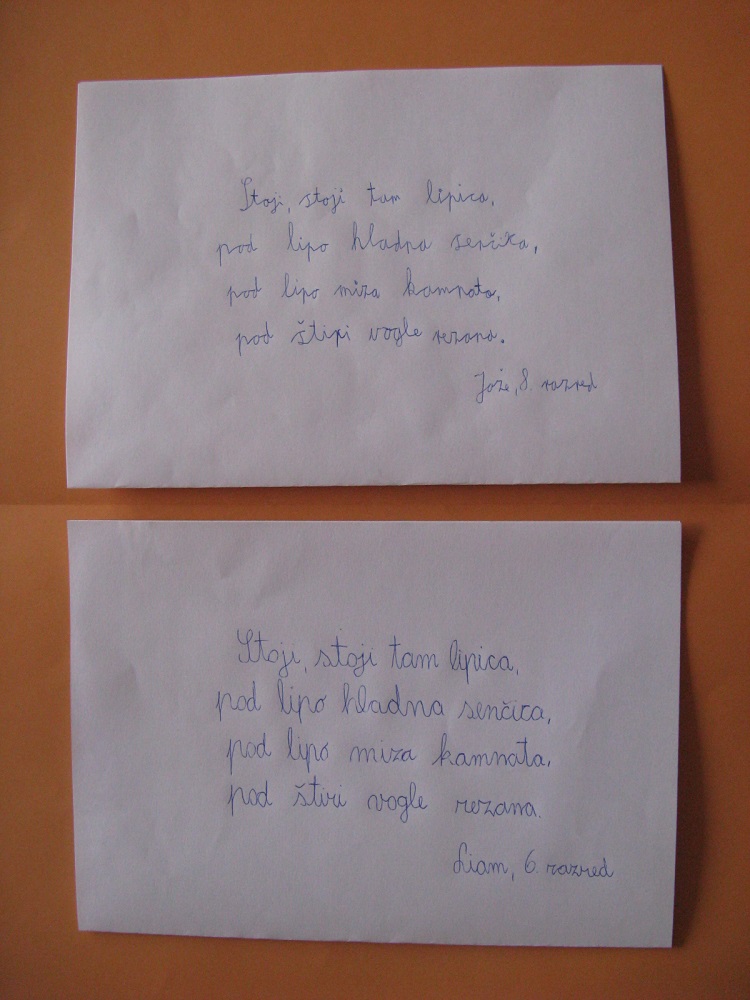 Stoji, stoji tam lipica,
pod lipo hladna senčica,
pod lipo miza kamnata,
pod štiri vogle rezana.
Jože, 8. razred
Stoji, stoji tam lipica,
pod lipo hladna senčica,
pod lipo miza kamnata,
pod štiri vogle rezana.
Liam, 6. razred